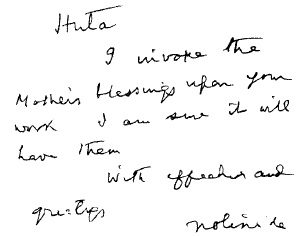 Huta
I invoke the
Mother's blessings upon your
work I am sure it will
have them
With affection and
greetings
Nolini da